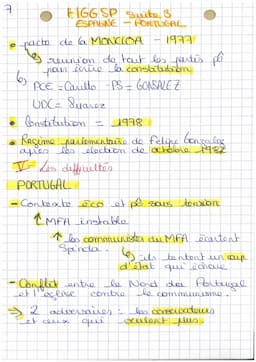 7
HGGSP suite 3
ESPAGNE - PORTUGAL
pacte de la MONCLOA - 1977
réunion de tout les partis pô
pour écrire la constitution
PCE = Carillo - PS = GONSALEZ
UDC = Suarez
Constitution = 1978
Régime parlementaire de Felipe Gonzalez
après les élection de octobre 1982
V - Les difficultés
PORTUGAL
- Contexte éco et pô sous tension
MFA instable
les communistes du MFA écartent
Spinola.
ils tentent un coup
d'état qui échoue
- Conflit entre le Nord du Portugal
et l'église contre le communisme.
2 adversaires : les conservateurs
et ceux qui veulent plus.